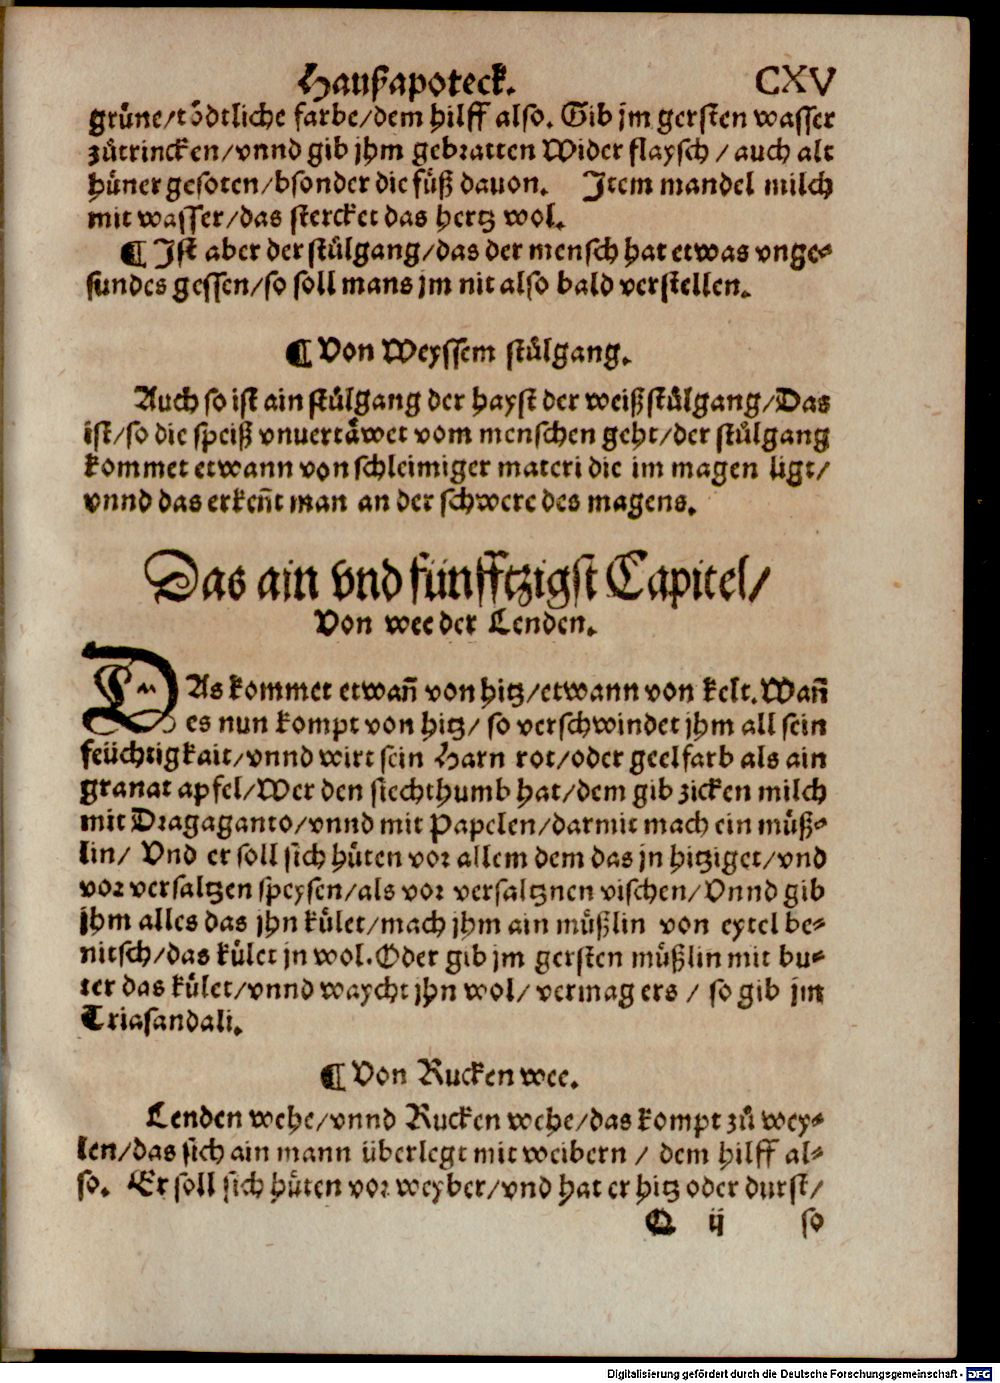 Haußapoteck. CXV
grüne/tödtliche farbe/dem hilff also. Gib jm gersten wasser
zůtrincken/vnnd gib jhm gebratten Wider flaysch/auch alt
hüner gesoten/bsonder die füß dauon. Item mandel milch
mit wasser/das stercket das hertz wol.
¶ Ist aber der stůlgang/das der mensch hat etwas vnge⸗
sundes gessen/so soll mans jm nit also bald verstellen.
¶ Von Weyssem stůlgang.
Auch so ist ain stůlgang der hayst der weiß stůlgang/Das
ist/so die speiß vnuertäwet vom menschen geht/der stůlgang
kommet etwann von schleimiger materi die im magen ligt/
vnnd das erkeñt man an der schwere des magens.
Das ain vnd fünfftzigst Capitel/
Von wee der Lenden.
DAs kommet etwañ von hitz/etwann von kelt. Wañ
es nun kompt von hitz/ so verschwindet jhm all sein
feüchtigkait/vnnd wirt sein Harn rot/oder geelfarb als ain
granat apfel/Wer den siechthumb hat/dem gib zicken milch
mit Dragaganto/vnnd mit Papelen/darmit mach ein müß⸗
lin/ Vnd er soll sich hüten vor allem dem das jn hitziget/vnd
vor versaltzen speysen/als vor versaltznen vischen/Vnnd gib
jhm alles das jhn kület/mach jhm ain müßlin von eytel be⸗
nitsch/das kület jn wol. Oder gib jm gersten müßlin mit bu⸗
ter das kület/vnnd waycht jhn wol/ vermag ers / so gib jm
Triasandali.
¶ Von Rucken wee.
Lenden wehe/vnnd Rucken wehe/das kompt zů wey⸗
len/das sich ain mann überlegt mit weibern / dem hilff al⸗
so. Er soll sich hüten vor weyber/vnd hat er hitz oder durst/
Q ij so
Digitalisierung gefördert durch die Deutsche Forschungsgemeinschaft - DFG